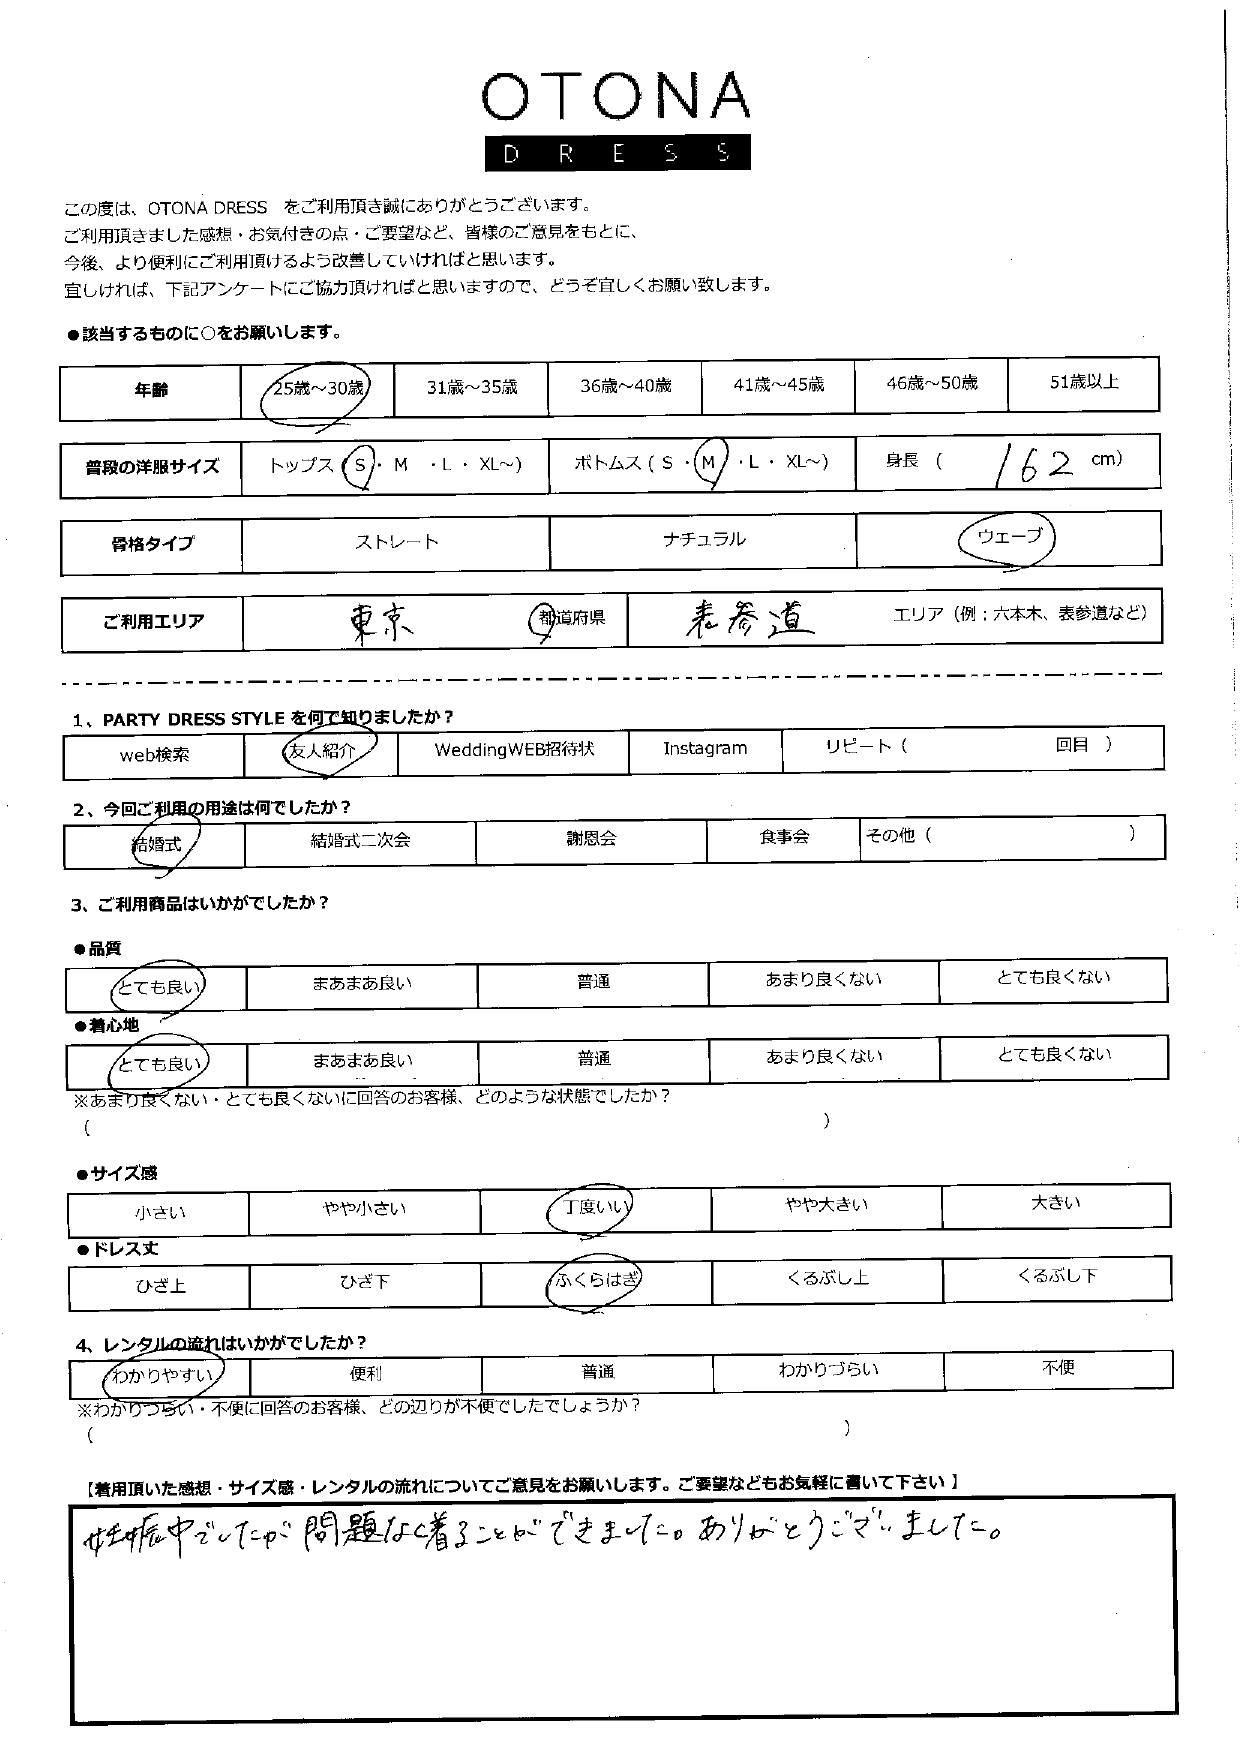 OTONA
DRESS
この度は、OTONA DRESS をご利用頂き誠にありがとうございます。
ご利用頂きました感想・お気付きの点・ご要望など、皆様のご意見をもとに、
今後、より便利にご利用頂けるよう改善していければと思います。
宜しければ、下記アンケートにご協力頂ければと思いますので、どうぞ宜しくお願い致します。
●該当するものに○をお願いします。
年齢 25歳～30歳 31歳～35歳 36歳～40歳 41歳～45歳 46歳～50歳 51歳以上
普段の洋服サイズ トップス ( S ・ M ・ L ・ XL～) ボトムス ( S ・ M ・ L ・ XL～) 身長 ( 162 cm)
骨格タイプ ストレート ナチュラル ウェーブ
ご利用エリア 東京 都道府県 表参道 エリア（例：六本木、表参道など）
1、PARTY DRESS STYLE を何で知りましたか？
web検索 友人紹介 WeddingWEB招待状 Instagram リピート ( 回目 )
2、今回ご利用の用途は何でしたか？
結婚式 結婚式二次会 謝恩会 食事会 その他 ( )
3、ご利用商品はいかがでしたか？
●品質
とても良い まあまあ良い 普通 あまり良くない とても良くない
●着心地
とても良い まあまあ良い 普通 あまり良くない とても良くない
※あまり良くない・とても良くないに回答のお客様、どのような状態でしたか？
( )
●サイズ感
小さい やや小さい 丁度いい やや大きい 大きい
●ドレス丈
ひざ上 ひざ下 ふくらはぎ くるぶし上 くるぶし下
4、レンタルの流れはいかがでしたか？
わかりやすい 便利 普通 わかりづらい 不便
※わかりづらい・不便に回答のお客様、どの辺りが不便でしたでしょうか？
( )
【着用頂いた感想・サイズ感・レンタルの流れについてご意見をお願いします。ご要望などもお気軽に書いて下さい 】
妊娠中でしたが問題なく着ることができました。ありがとうございました。